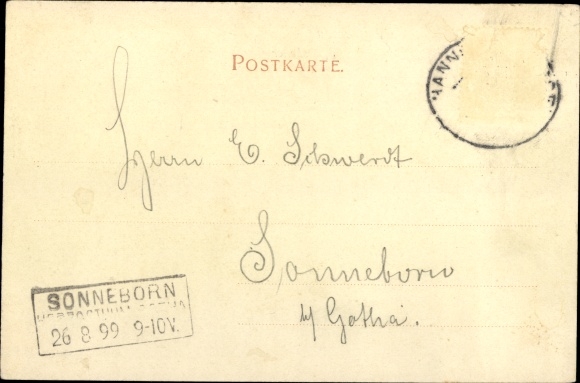 POSTKARTE.
HANN
Herrn E. Schwerdt
Sonneborn
b/ Gotha.
SONNEBORN
HERZOGTHUM GOTHA
26 8 99 9-10V.